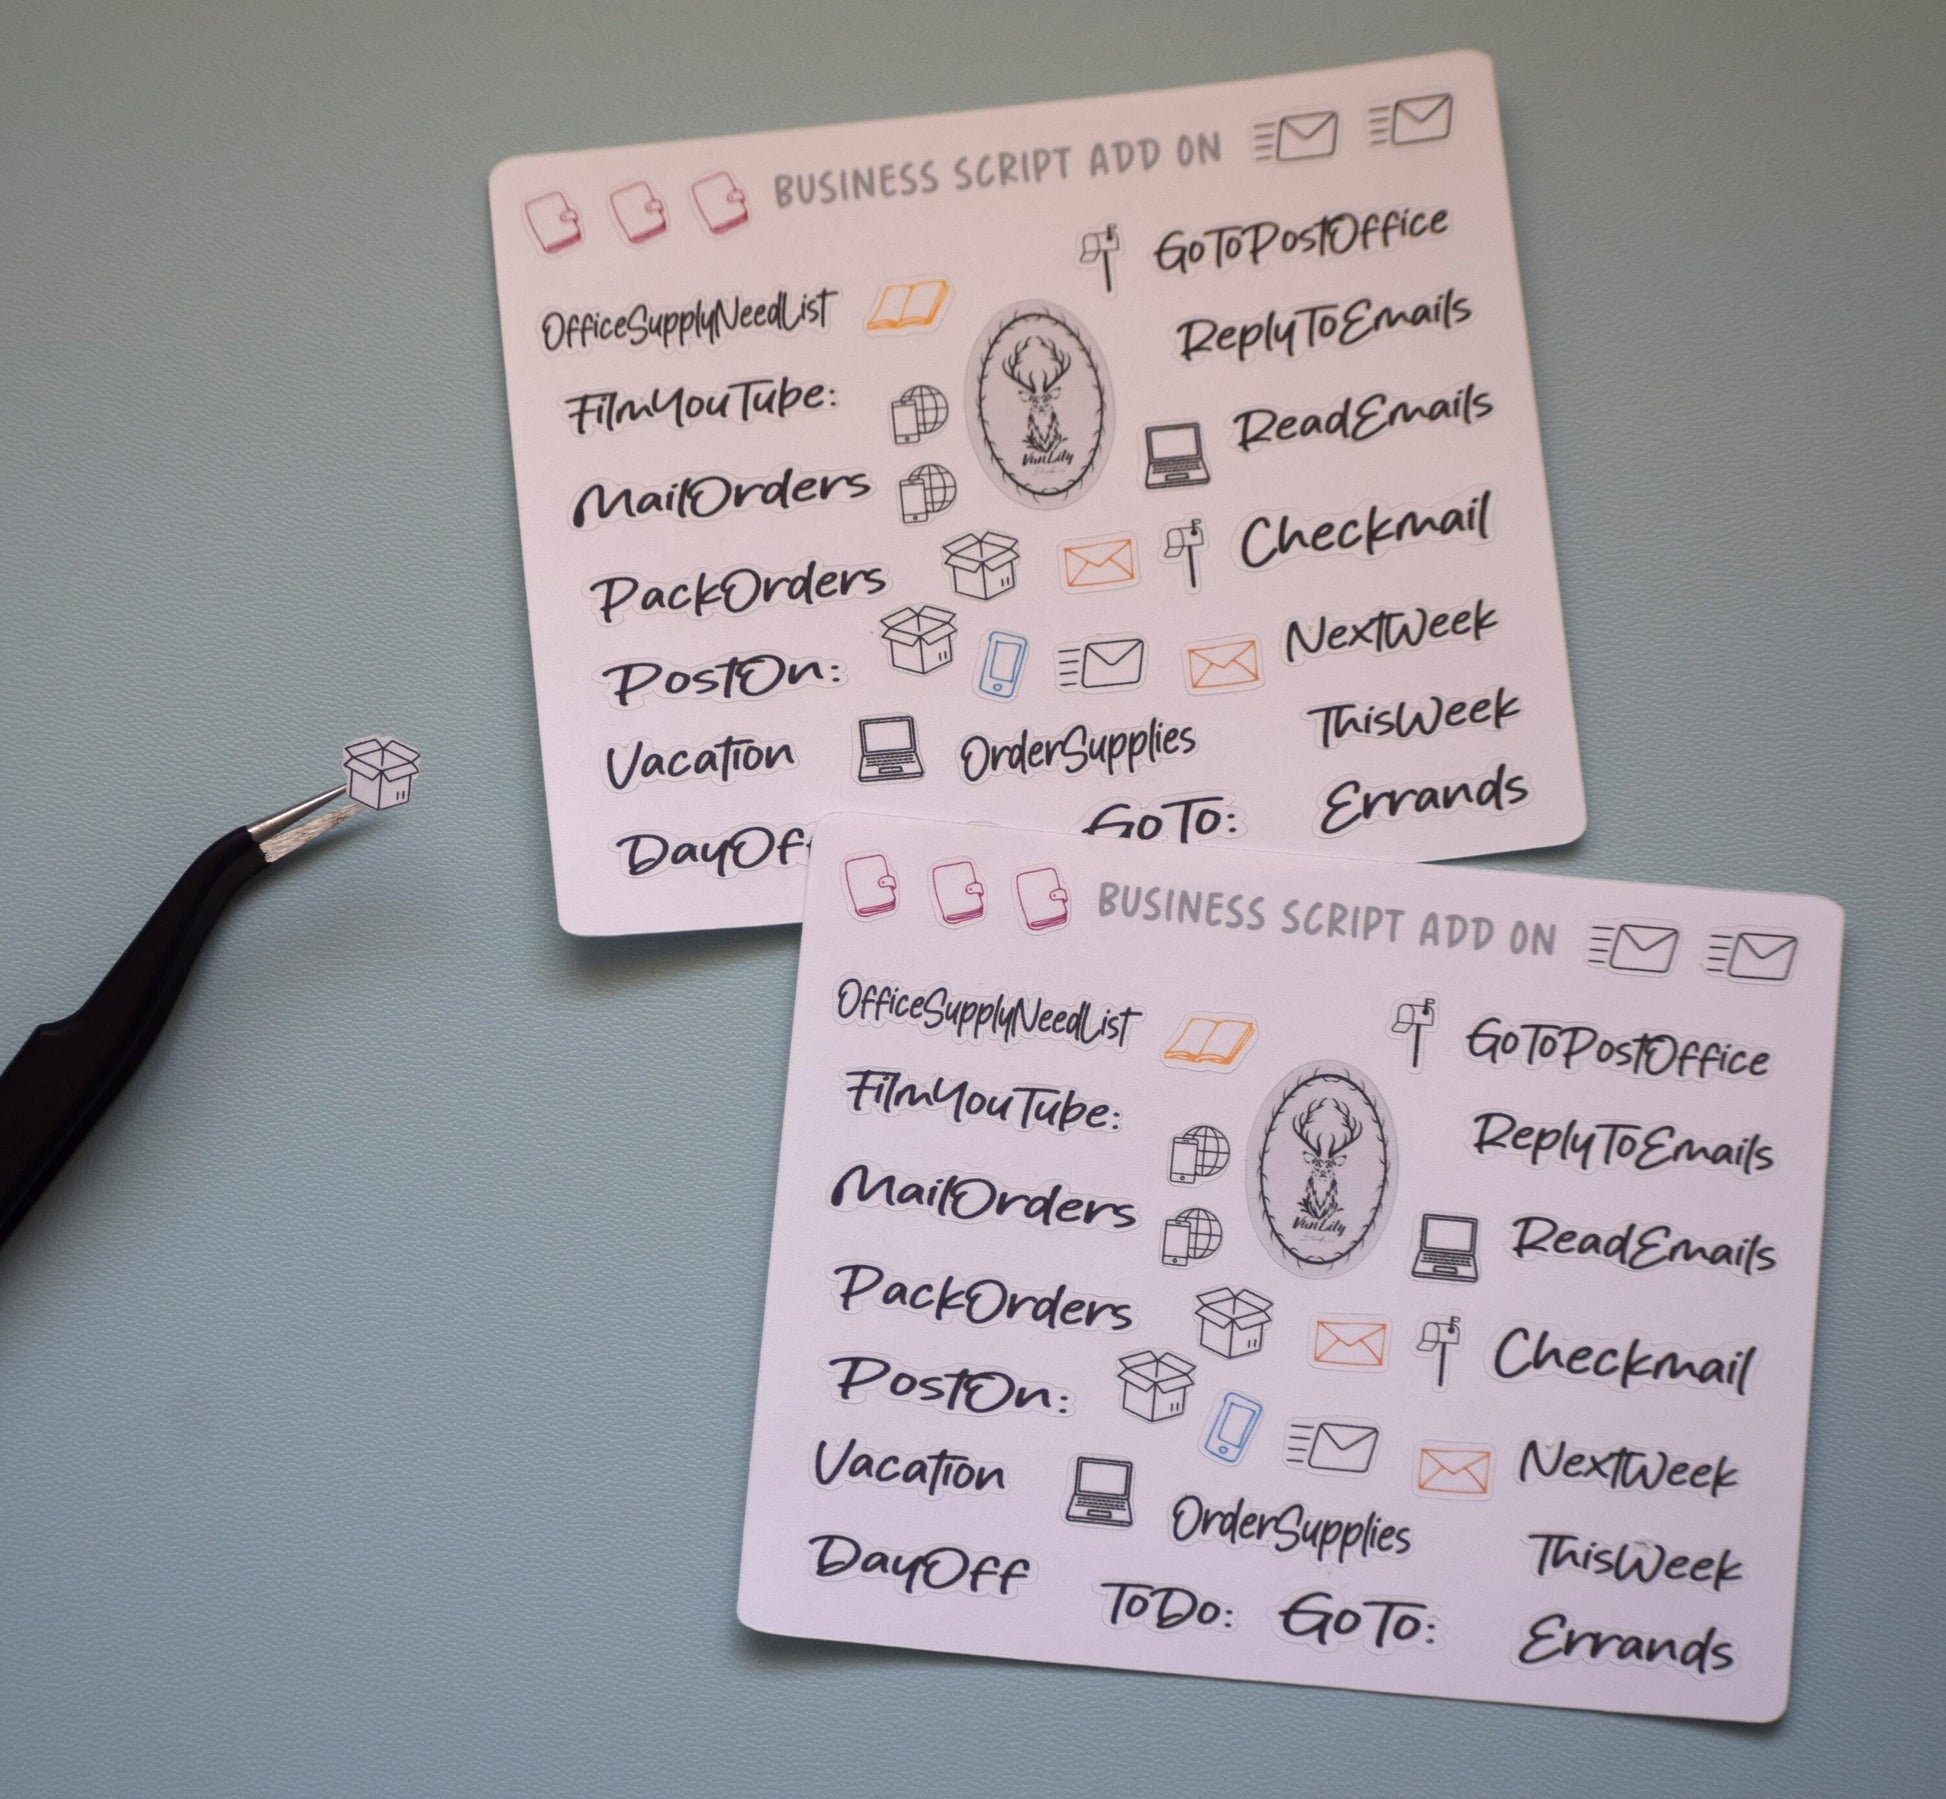 BUSINESS SCRIPT ADD ON
GoToPostOffice
OfficeSupplyNeedList
ReplyToEmails
FilmYouTube:
ReadEmails
VanLily
MailOrders
Checkmail
PackOrders
NextWeek
PostOn:
ThisWeek
Vacation
OrderSupplies
Errands
GoTo:
DayOf
BUSINESS SCRIPT ADD ON
OfficeSupplyNeedList
GoToPostOffice
FilmYouTube:
ReplyToEmails
MailOrders
VanLily
Studios
ReadEmails
PackOrders
Checkmail
PostOn:
Vacation
NextWeek
OrderSupplies
DayOff
ThisWeek
ToDo:
GoTo:
Errands